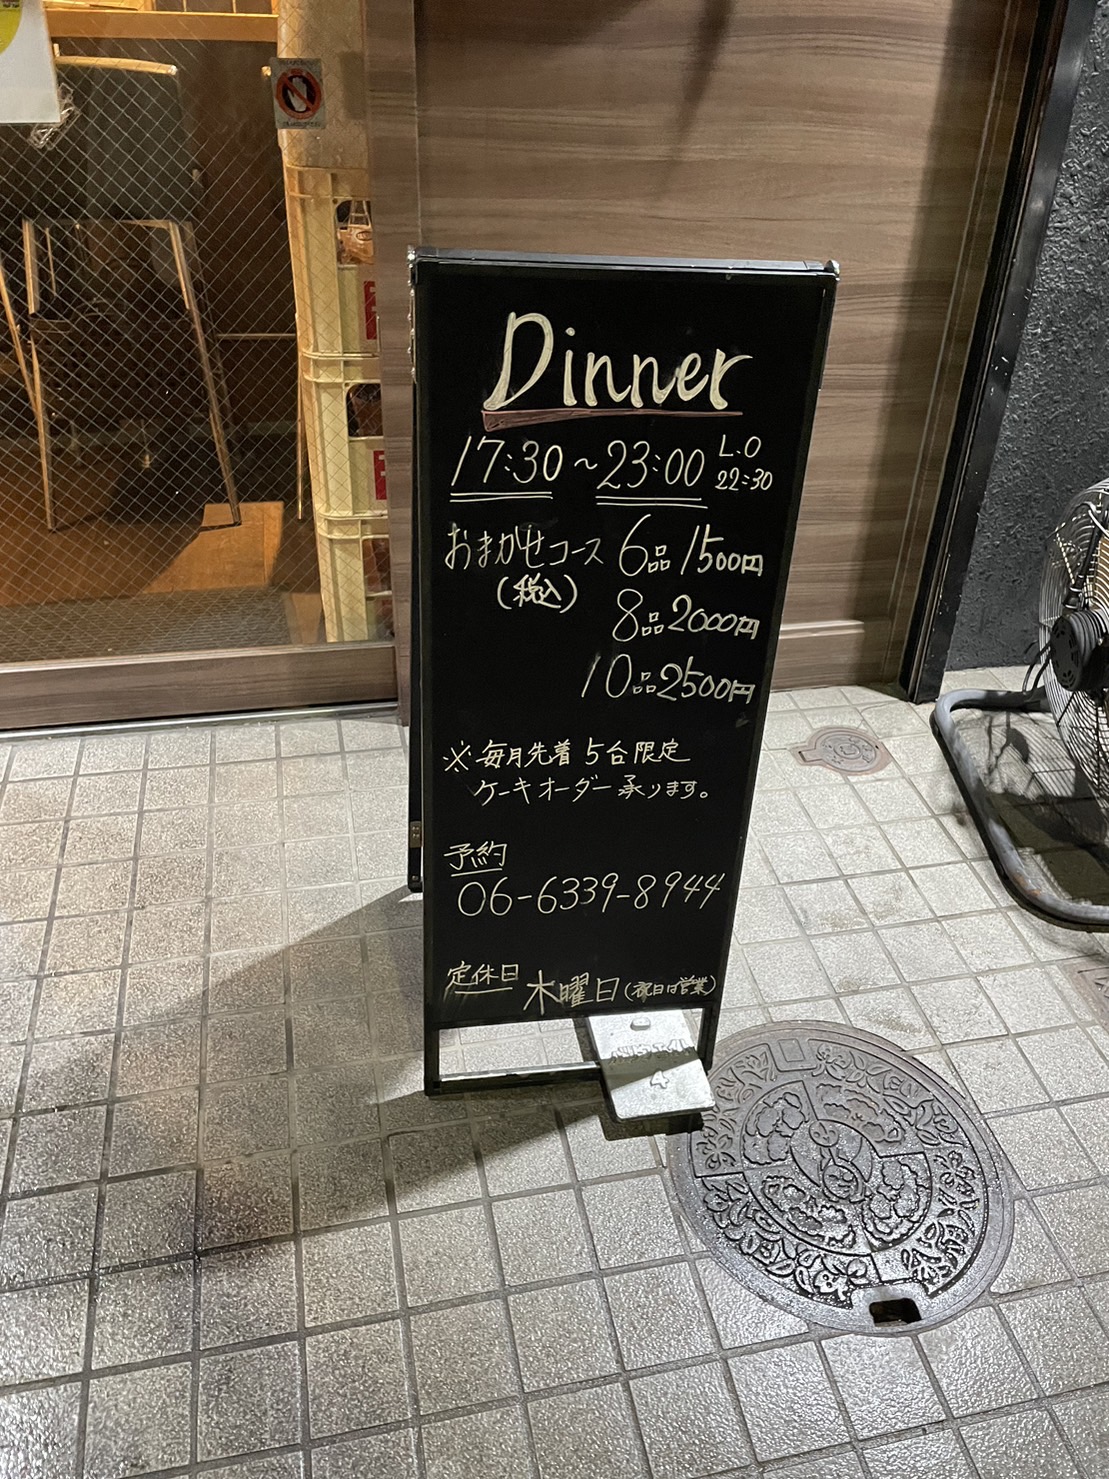 Dinner
17:30~23:00 L.O
22:30
おまかせコース 6品 1500円
(税込)
8品 2000円
10品 2500円
※毎月先着 5台限定
ケーキオーダー承ります。
予約
06-6339-8944
定休日 木曜日(祝日は営業)
4